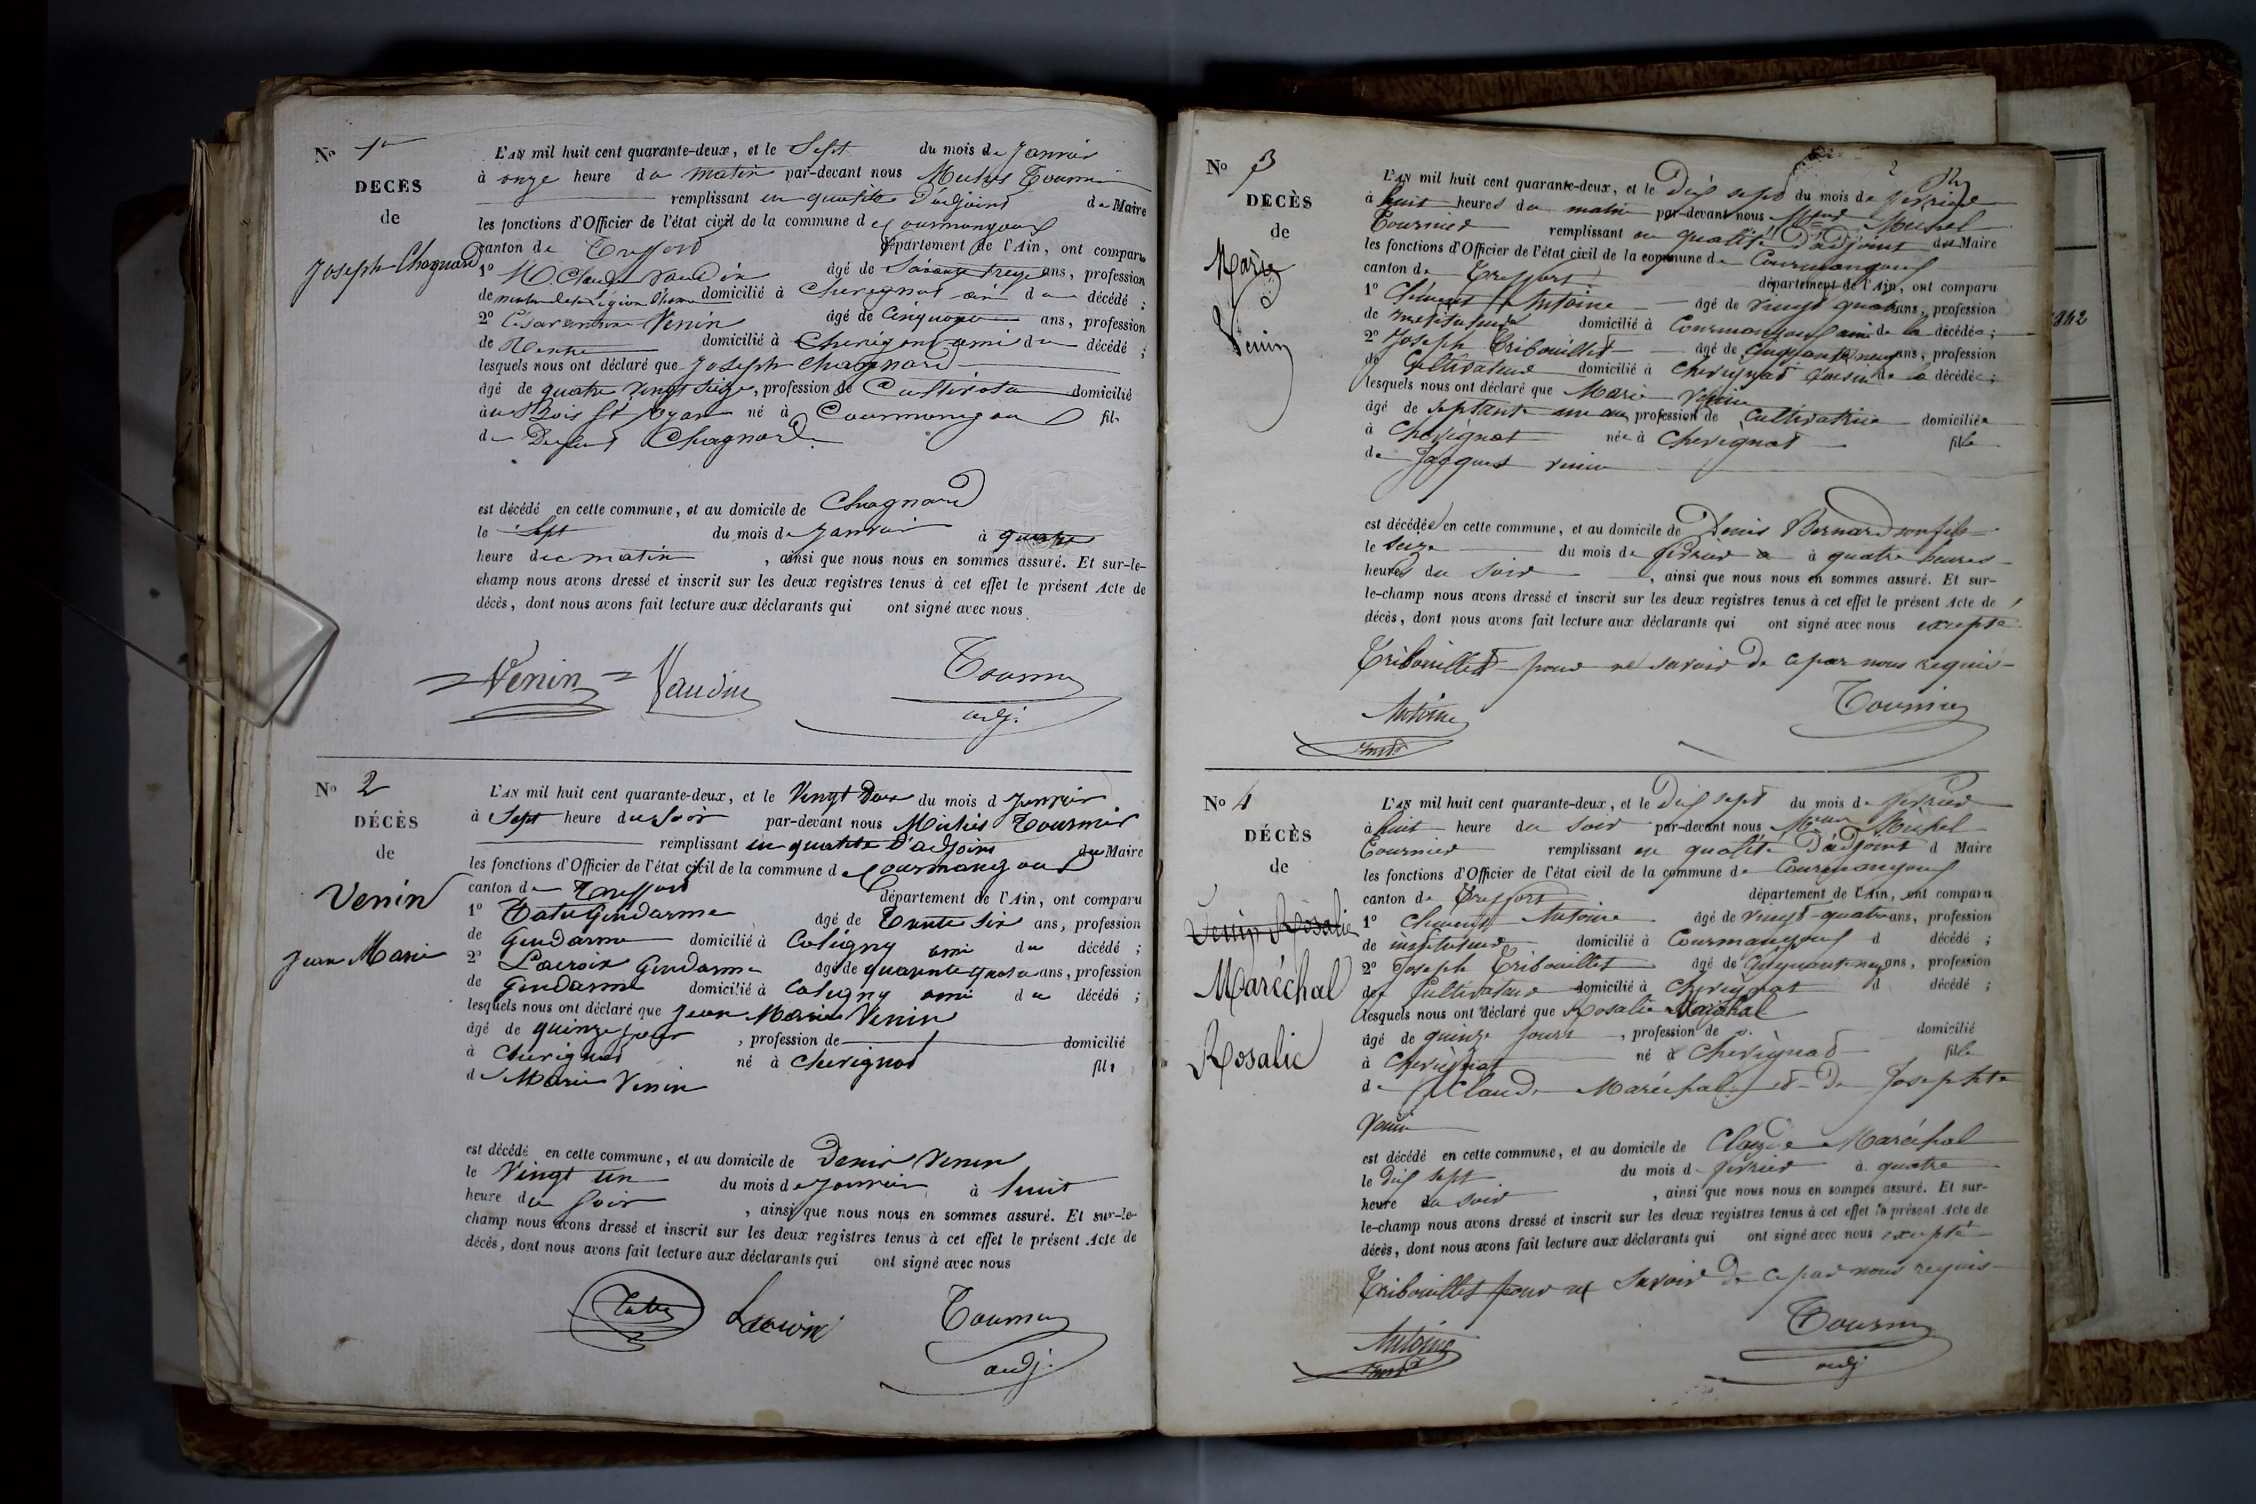 No 1er
DECÈS
de
Joseph Chagnard
L'AN mil huit cent quarante-deux, et le Sept du mois de Janvier
à onze heure du matin par-devant nous Michel Tournier
remplissant en qualité d'adjoint du Maire
les fonctions d'Officier de l'état civil de la commune de Courmangoux
canton de Treffort département de l'Ain, ont comparu
1o M. Claude Vaudin âgé de Soixante treize ans, profession
de domicilié à Chevignat ami du décédé ;
2o Venin âgé de Cinquante ans, profession
de Rentier domicilié à Chevignat ami du décédé ;
lesquels nous ont déclaré que Joseph Chagnard
âgé de quatre vingt seize, profession de Cultivateur domicilié
au Bois St né à Courmangoux fils
de Defunt Chagnard
est décédé en cette commune, et au domicile de Chagnard
le Sept du mois de Janvier à quatre
heure du matin, ainsi que nous nous en sommes assuré. Et sur-le-
champ nous avons dressé et inscrit sur les deux registres tenus à cet effet le présent Acte de
décès, dont nous avons fait lecture aux déclarants qui ont signé avec nous
Venin Vaudin Tournier
adj.
No 2
DÉCÈS
de
Venin
Jean Marie
L'AN mil huit cent quarante-deux, et le Vingt Deux du mois d Janvier
à Sept heure du Soir par-devant nous Michel Tournier
remplissant en qualité d'adjoint du Maire
les fonctions d'Officier de l'état civil de la commune de Courmangoux
canton de Treffort département de l'Ain, ont comparu
1o Gendarme âgé de Trente Six ans, profession
de Gendarme domicilié à Coligny ami du décédé ;
2o Lacroix Gendarme âgé de quarante quatre ans, profession
de Gendarme domicilié à Coligny ami du décédé ;
lesquels nous ont déclaré que Jean Marie Venin
âgé de quinze jour, profession de domicilié
à Chevignat né à Chevignat fils
de Marie Venin
est décédé en cette commune, et au domicile de Denis Venin
le Vingt un du mois de Janvier à huit
heure du Soir, ainsi que nous nous en sommes assuré. Et sur-le-
champ nous avons dressé et inscrit sur les deux registres tenus à cet effet le présent Acte de
décès, dont nous avons fait lecture aux déclarants qui ont signé avec nous
Lacroix Tournier
adj.
No 3
DECÈS
de
Marie
Venin
L'AN mil huit cent quarante-deux, et le Dix sept du mois de Février
à huit heures du matin par-devant nous Michel
Tournier remplissant en qualité d'adjoint du Maire
les fonctions d'Officier de l'état civil de la commune de Courmangoux
canton de Treffort département de l'Ain, ont comparu
1o Clément Antoine âgé de vingt quatre ans, profession
de instituteur domicilié à Courmangoux ami de la décédée ;
2o Joseph Tribouillet âgé de Cinquante neuf ans, profession
de Cultivateur domicilié à Chevignat voisin de la décédée ;
lesquels nous ont déclaré que Marie Venin
âgé de septante un ans, profession de Cultivatrice domiciliée
à Chevignat née à Chevignat fille
de Jacques venin
est décédée en cette commune, et au domicile de Denis Bernard son fils
le Seize du mois de février à quatre heures
heures du soir, ainsi que nous nous en sommes assuré. Et sur-
le-champ nous avons dressé et inscrit sur les deux registres tenus à cet effet le présent Acte de
décès, dont nous avons fait lecture aux déclarants qui ont signé avec nous excepté
Tribouillet pour ne savoir de ce par nous requis
Antoine Tournier
No 4
DÉCÈS
de
Venin Rosalie
Maréchal
Rosalie
L'AN mil huit cent quarante-deux, et le Dix sept du mois de Février
à huit heure du soir par-devant nous Michel
Tournier remplissant en qualité d'adjoint d Maire
les fonctions d'Officier de l'état civil de la commune de Courmangoux
canton de Treffort département de l'Ain, ont comparu
1o Clément Antoine âgé de vingt-quatre ans, profession
de instituteur domicilié à Courmangoux d décédé ;
2o Joseph Tribouillet âgé de Cinquante neuf ans, profession
de Cultivateur domicilié à Chevignat d décédé ;
lesquels nous ont déclaré que Rosalie Maréchal
âgé de quinze jours, profession de domicilié
à Chevignat né à Chevignat fille
de Claude Maréchal et de Josephte
Venin
est décédé en cette commune, et au domicile de Claude Maréchal
le Dix sept du mois d février à quatre
heure du soir, ainsi que nous nous en sommes assuré. Et sur-
le-champ nous avons dressé et inscrit sur les deux registres tenus à cet effet le présent Acte de
décès, dont nous avons fait lecture aux déclarants qui ont signé avec nous excepté
Tribouillet pour ne savoir de ce par nous requis
Antoine Tournier
adj
1842